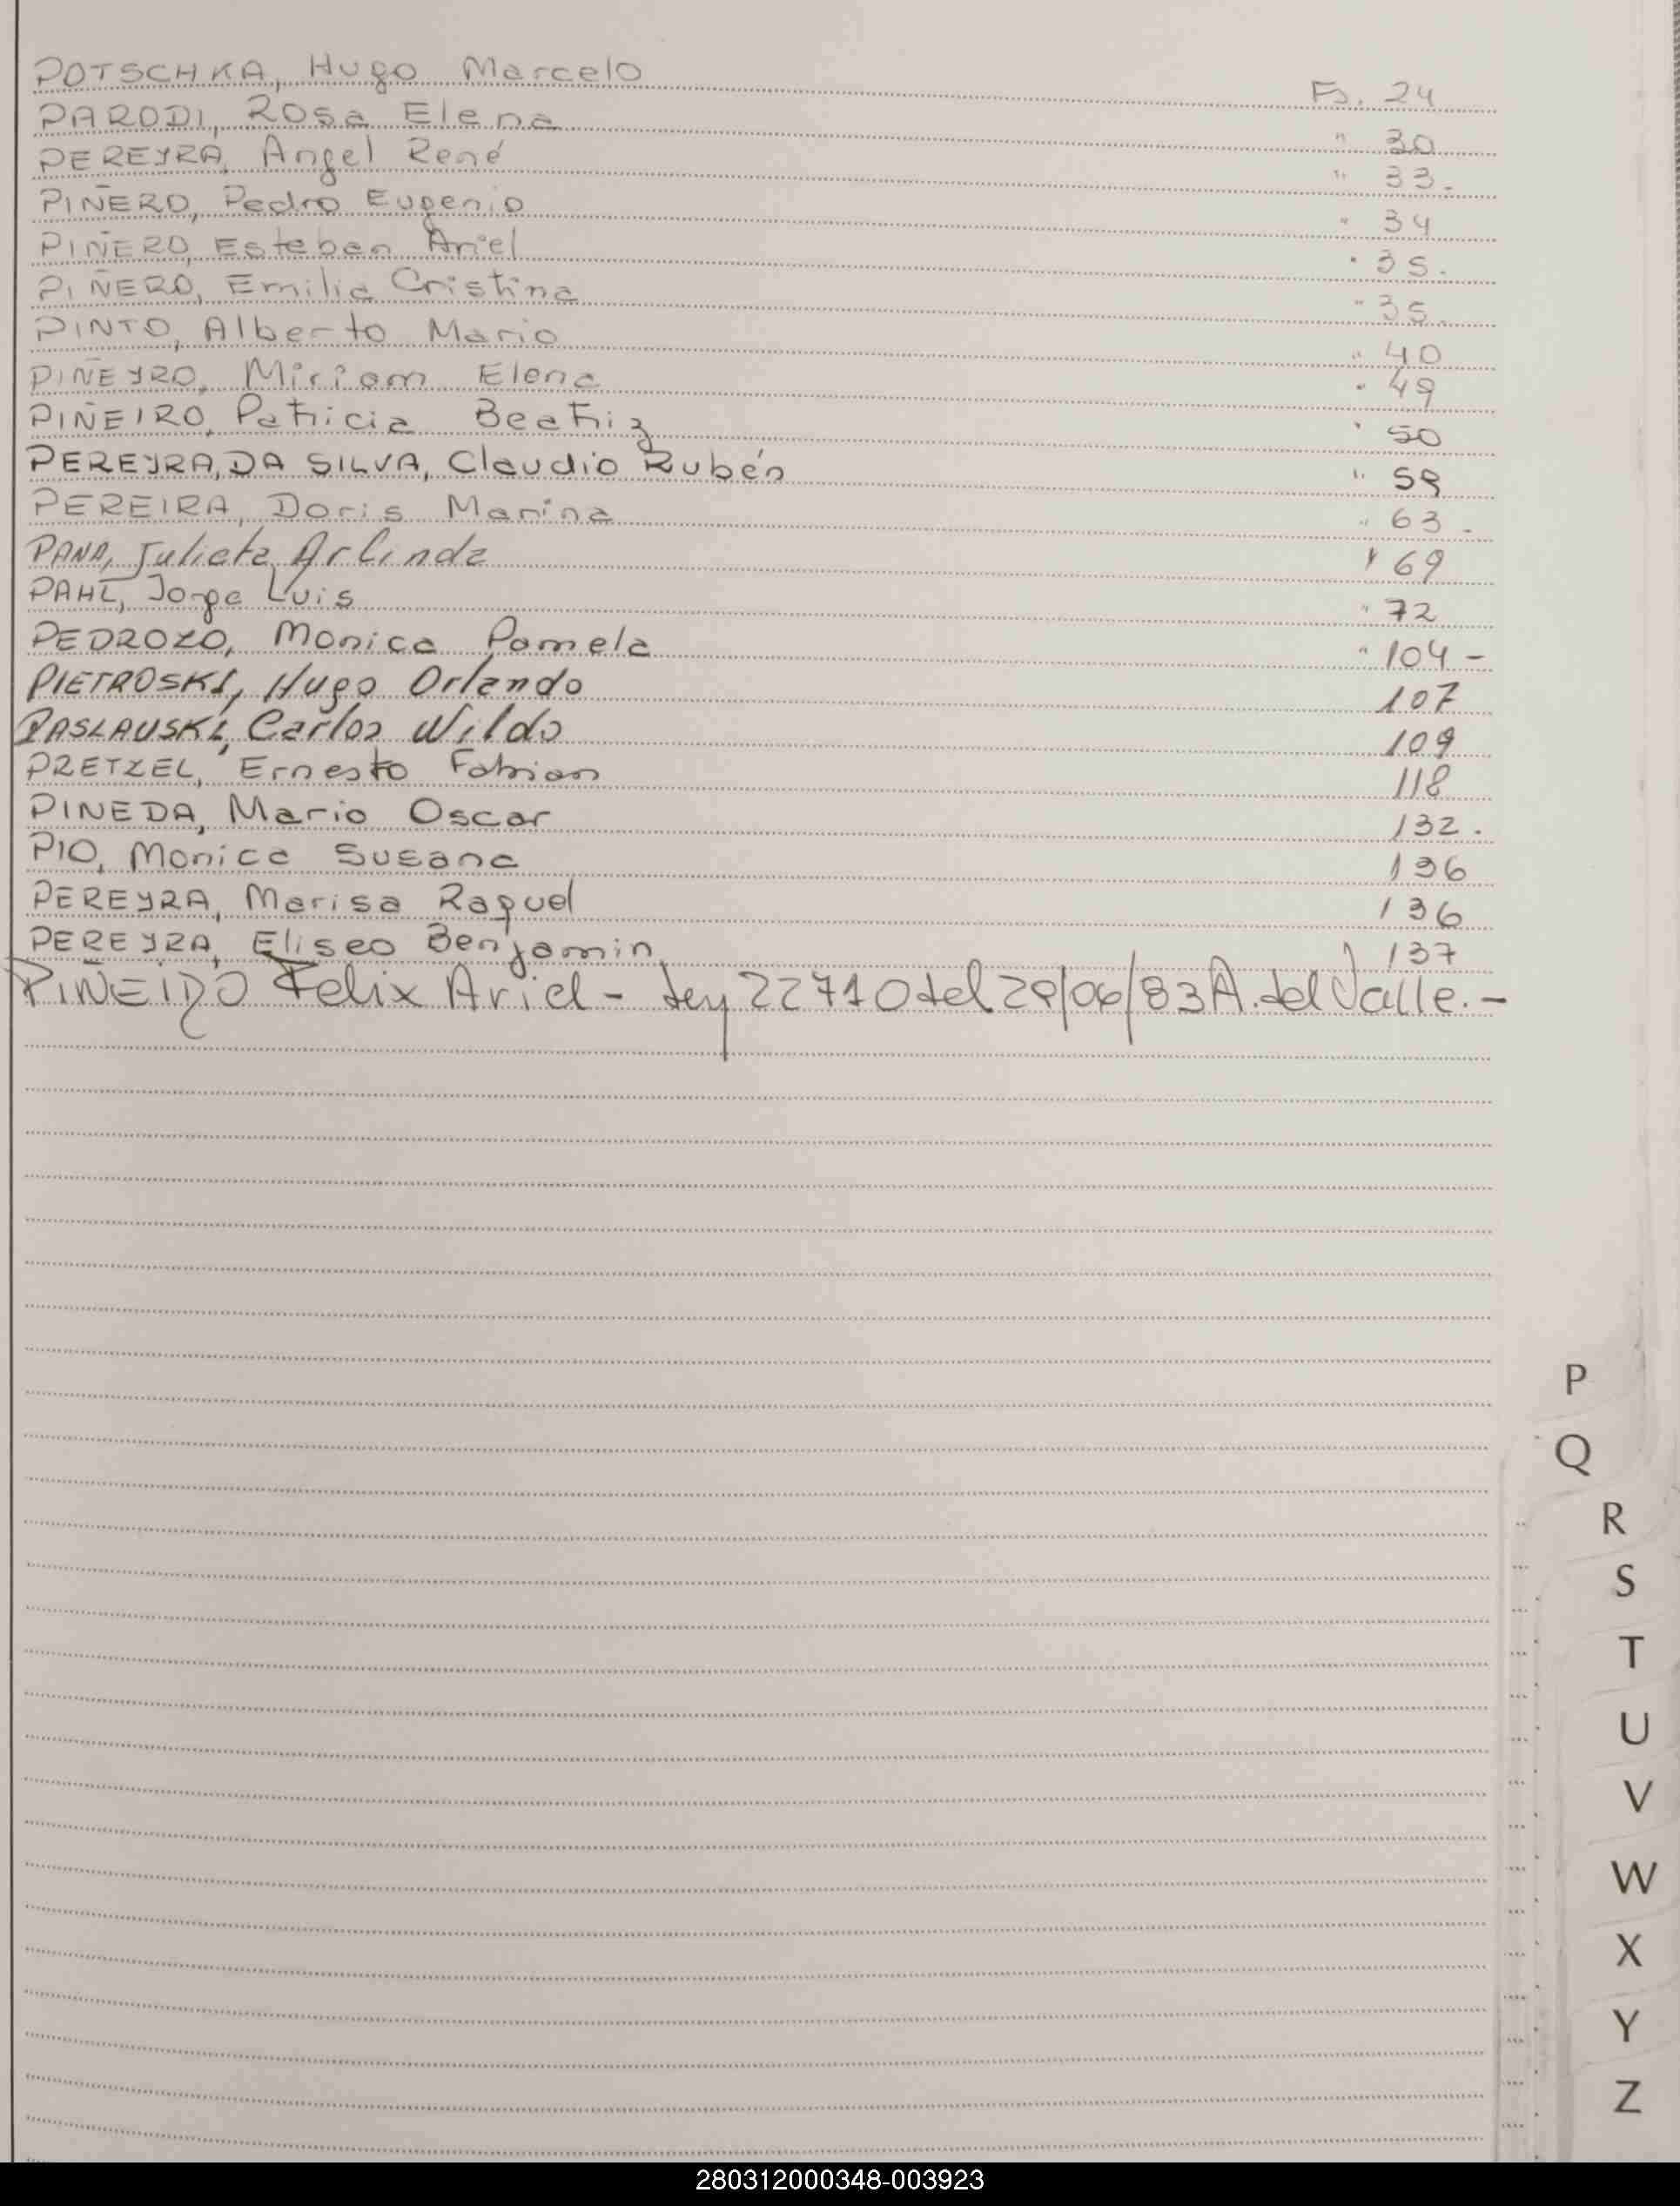 POTSCHKA, Hugo Marcelo Fs. 24
PARODI, Rosa Elena " 30
PEREYRA, Angel René " 33.
PIÑERO, Pedro Eugenio " 34
PIÑERO, Esteban Ariel " 35.
PIÑERO, Emilia Cristina " 35.
PINTO, Alberto Mario " 40
PIÑEYRO, Miriam Elena " 49
PIÑEIRO, Patricia Beatriz " 50
PEREYRA, DA SILVA, Claudio Rubén " 59
PEREIRA, Doris Marina " 63.
PANA, Julieta Arlinda " 69
PAHL, Jorge Luis " 72
PEDROZO, Monica Pamela " 104 -
PIETROSKI, Hugo Orlando 107
PASLAUSKI, Carlos Wildo 109
PRETZEL, Ernesto Fabian 118
PINEDA, Mario Oscar 132.
PIO, Monica Susana 136
PEREYRA, Marisa Raquel 136
PEREYRA, Eliseo Benjamin 137
PIÑEIDO Felix Ariel - Ley 22710 del 29/06/83 A. del Valle. -
P
Q
R
S
T
U
V
W
X
Y
Z
280312000348-003923